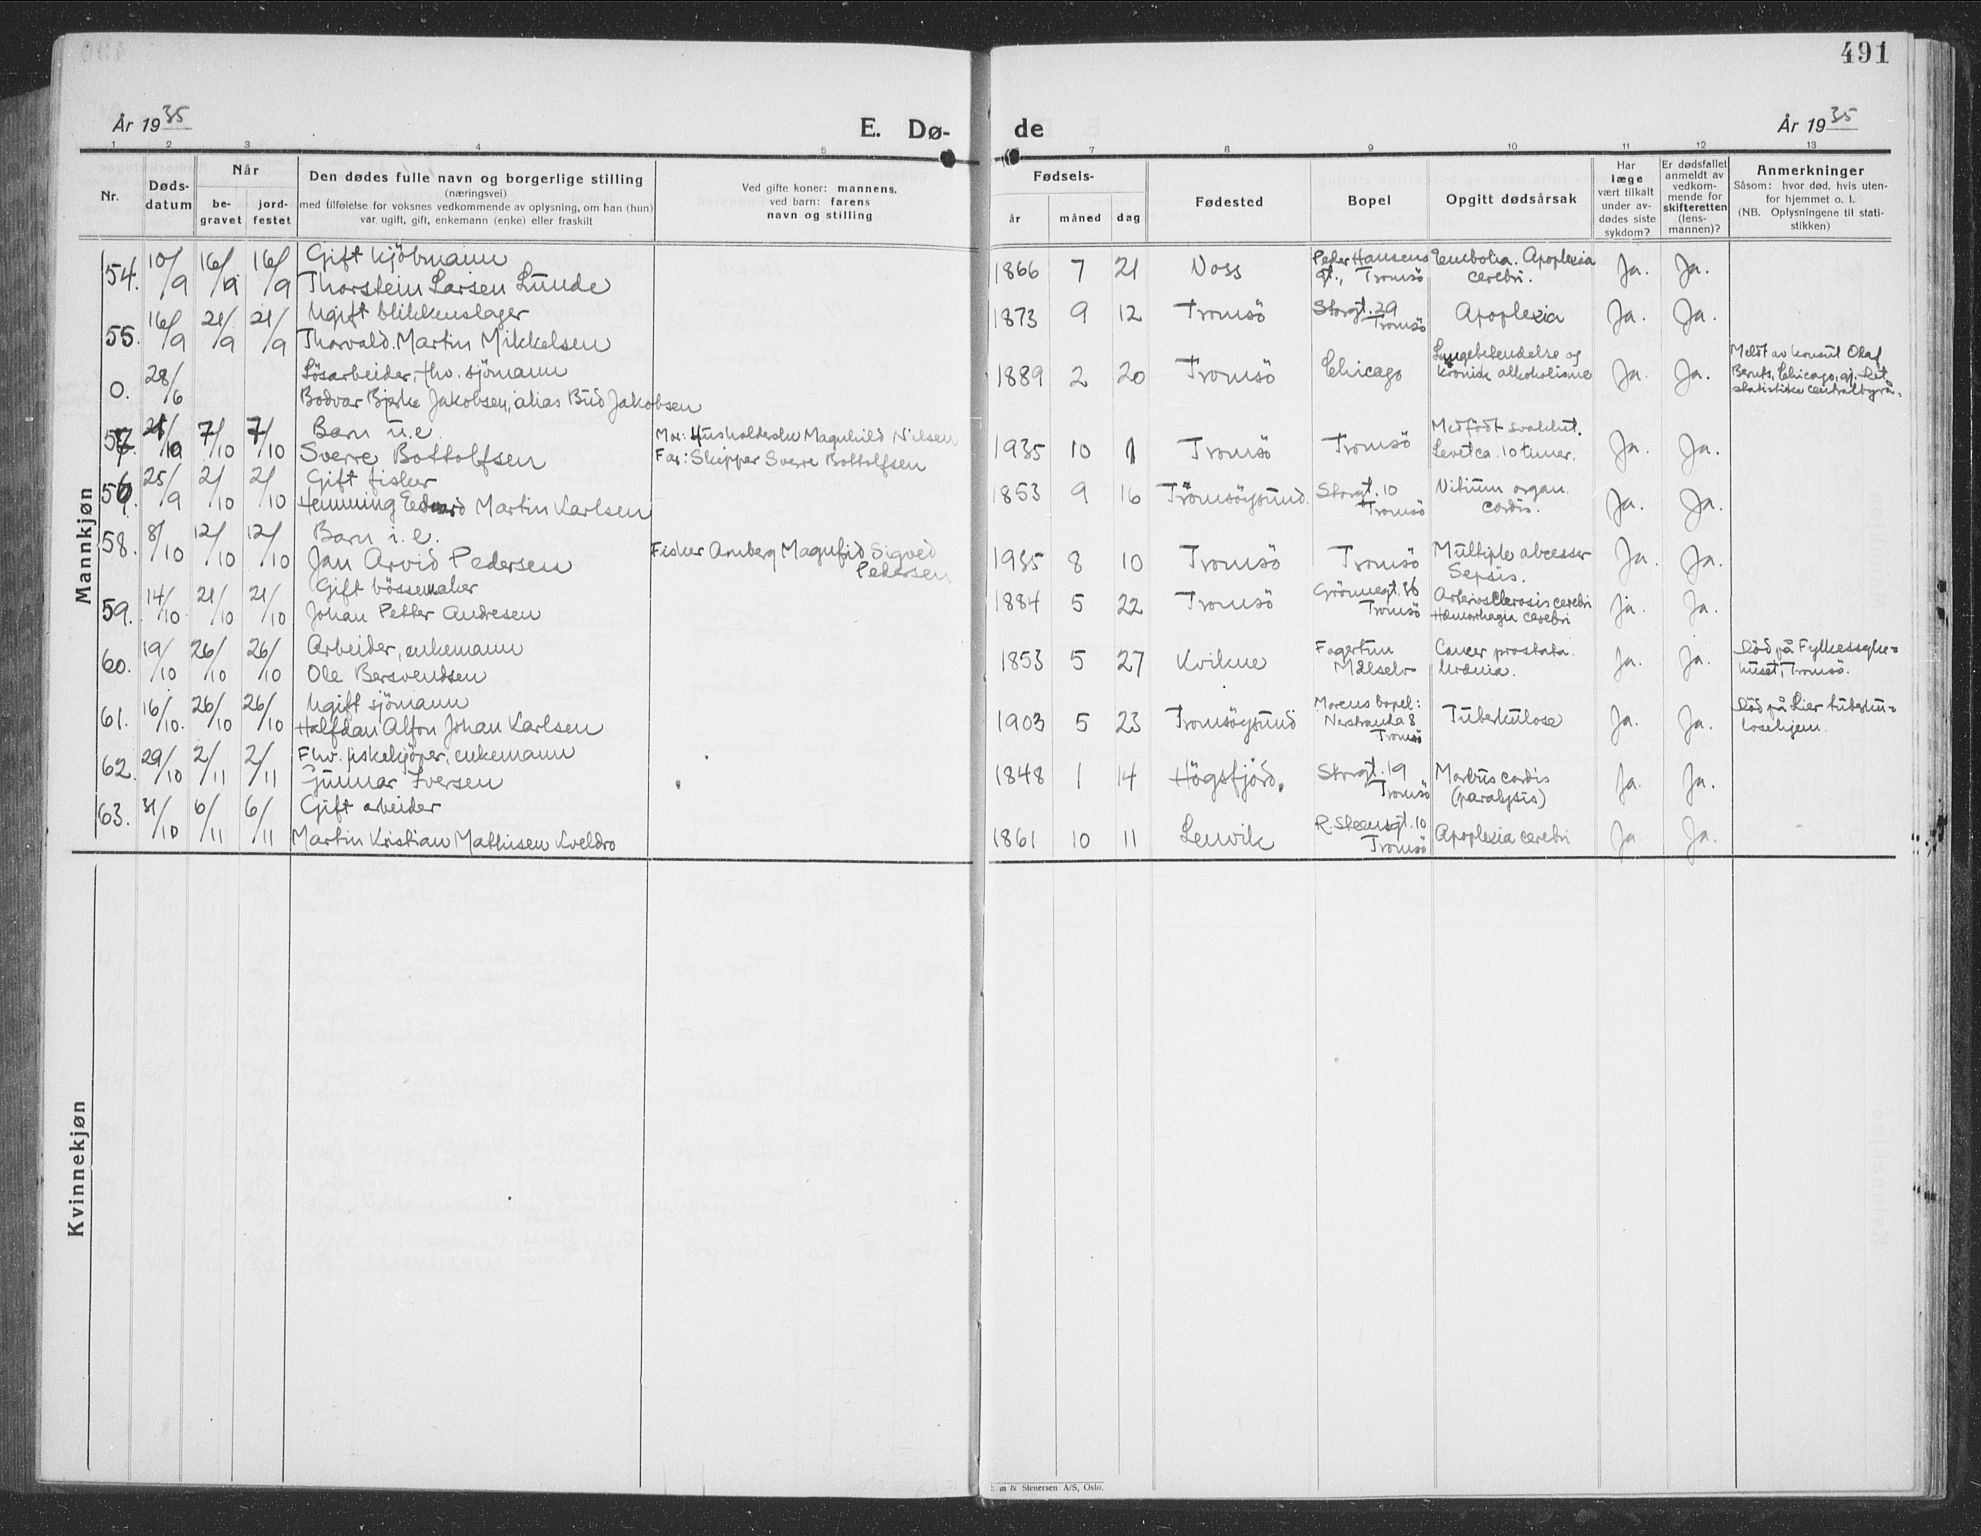 491
År 1935
E. Dø- de
År 1935
1 2 3 4 5 7 8 9 10 11 12 13
Nr.
Døds-
datum
Når
be-
gravet
jord-
festet
Den dødes fulle navn og borgerlige stilling
(næringsvei)
med tilføielse for voksnes vedkommende av oplysning, om han (hun)
var ugift, gift, enkemann (enke) eller fraskilt
Ved gifte koner: mannens,
ved barn: farens
navn og stilling
Fødsels-
år måned dag
Fødested
Bopel
Opgitt dødsårsak
Har
læge
vært tilkalt
under av-
dødes siste
sykdom?
Er dødsfallet
anmeldt av
vedkom-
mende for
skifteretten
(lens-
mannen)?
Anmerkninger
Såsom: hvor død, hvis uten-
for hjemmet o. l.
(NB. Oplysningene til stati-
stikken)
Mannkjøn
54. 10/9 16/9 16/9 Gift kjöbmann
Thorstein Larsen Lunde
1866 7 21 Voss
Peder Hansens
gt., Tromsö
Embolia. Apoplexia
cerebri.
Ja. Ja.
55. 16/9 21/9 21/9 Ugift blikkenslager
Thorvald Martin Mikkelsen
1873 9 12 Tromsö
Storgt. 29
Tromsö
Apoplexia
Ja. Ja.
0. 28/6 Lösarbeider, fhv. sjömann
Bodvar Bjerke Jakobsen, alias Bud Jakobsen
1889 2 20 Tromsö Chicago
Lungebetendelse og
kronisk alkoholisme
Ja. Ja.
Meldt av konsul Olaf
Bernts, Chicago, gj. Det
statistiske centralbyrå.
57. 7/10 7/10 Barn u.e.
Sverre Bottolfsen
Mor: Husholderske Magnhild Nilsen
Far: Skipper Sverre Bottolfsen
1935 10 1 Tromsö Tromsö
Medfödt svakhet.
Levet ca. 10 timer.
Ja. Ja.
56. 25/9 2/10 2/10 Gift fisker
Henning Edvard Martin Karlsen
1853 9 16 Tromsöysund
Storgt. 10
Tromsö
Vitium organ.
cordis.
Ja. Ja.
58. 8/10 12/10 12/10 Barn i.e.
Jan Arvid Pedersen
Fisker Arnberg Magnfrid Sigved
Pedersen
1935 8 10 Tromsö Tromsö
Multiple abcesser
Sepsis.
Ja. Ja.
59. 14/10 21/10 21/10 Gift bössemaker
Johan Petter Andresen
1884 5 22 Tromsö
Grönnegt. 36
Tromsö
Arteriosclerosis cerebri
Hæmorrhagia cerebri
ja. Ja.
60. 19/10 26/10 26/10 Arbeider, enkemann
Ole Bersvendsen
1853 5 27 Kvikne
Fagertun
Målselv
Cancer prostata.
Urämia.
Ja. Ja.
Död på Fylkessyke-
huset, Tromsö.
61. 16/10. 26/10 26/10 Ugift sjömann
Halfdan Alfon Johan Karlsen
1903 5 23 Tromsöysund
Morens bopel:
Nestranda 8
Tromsö
Tuberkulose
Ja. Ja.
Död på Lier tuberku-
losehjem.
62. 29/10 2/11 2/11 Fhv. fiskekjöper, enkemann
Gunnar Iversen
1848 1 14 Högsfjord.
Storgt. 19
Tromsö
Morbus cordis
(paralysis)
Ja. Ja.
63. 31/10 6/11 6/11 Gift arbeider
Martin Kristian Mathisen Kveldro
1861 10 11 Lenvik
R. Steensgt. 10
Tromsö
Apoplexia cerebri
Ja. Ja.
Kvinnekjøn
& Stenersen A/S, Oslo.